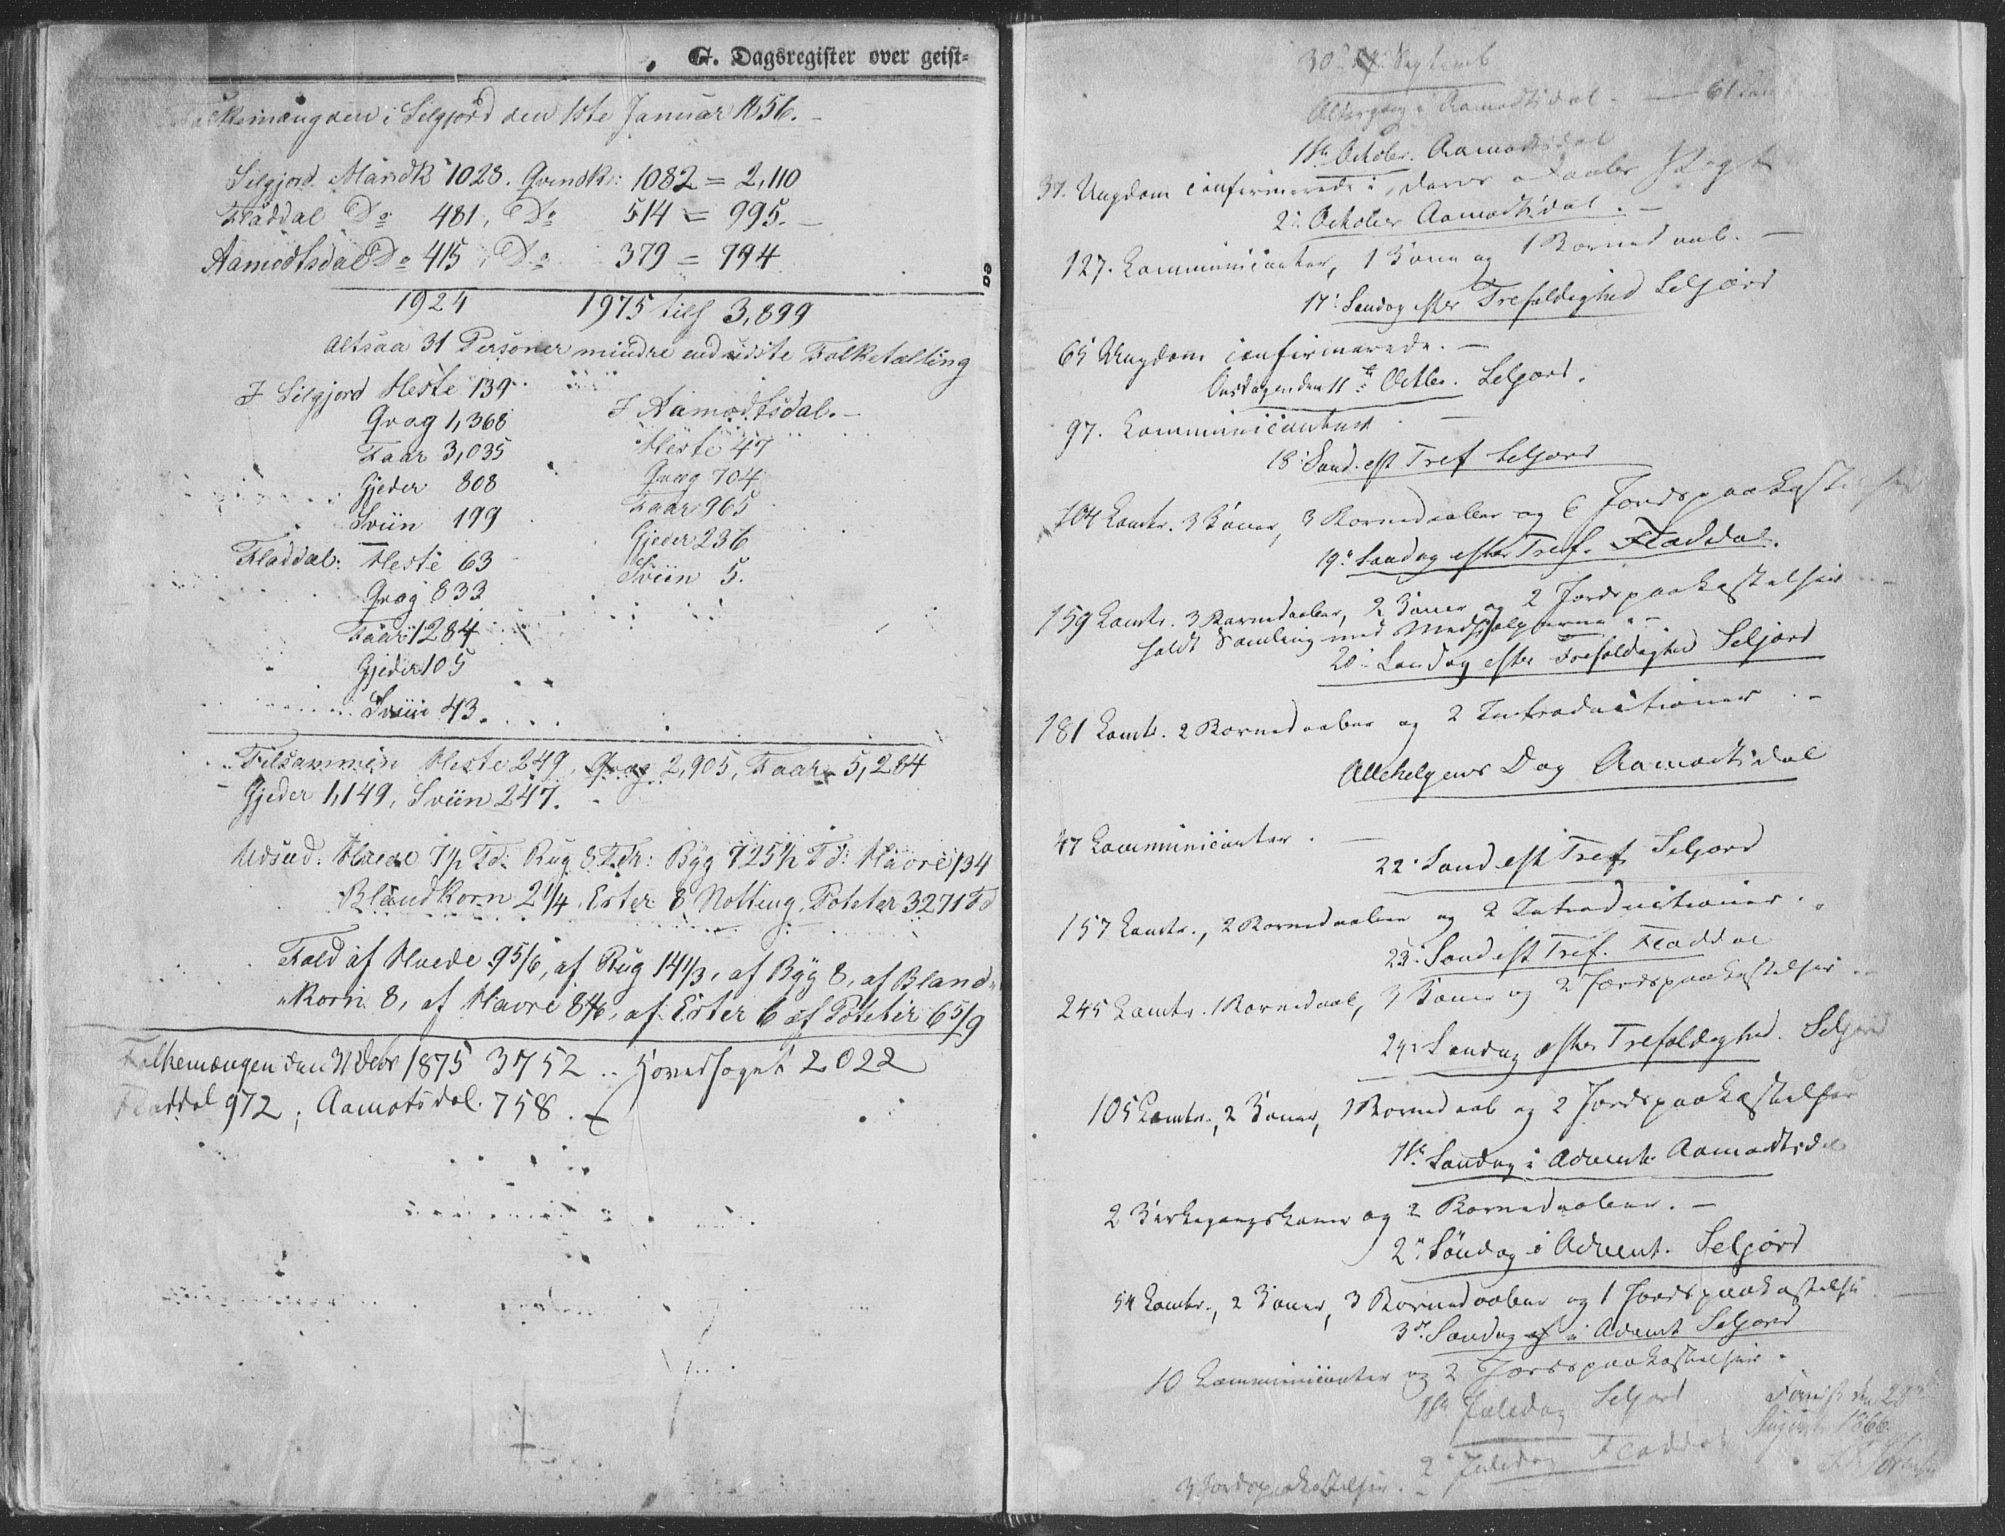 G. Dagsregister over geist-
Folkemængden i Selgjord den 1ste Januar 1856. -
Selgjord Mandk 1028. Qvindk: 1082 = 2,110
Fladdal Do 481, Do 514 = 995. -
Aamodtsdal Do 415, Do 379 = 794
1924 1975 tils 3,899
altsaa 31 Personer mindre end sidste Folketælling
I Selgjord Heste 139
Qvæg 1,368
Faar 3,035
Gjeder 808
Sviin 199
Fladdal: Heste 63
Qvæg 833
Faar 1284
Gjeder 105
Sviin 43.
I Aamodtsdal. -
Heste 47
Qvæg 704
Faar 965
Gjeder 236
Sviin 5.
Tilsammen Heste 249, Qvæg 2,905, Faar 5,284
Gjeder 1,149, Sviin 247.
Udsæd: Hvede 7½ Td: Rug 8 Tdr: Byg 725½ Td: Havre 134
Blandkorn 2¼ Erter 8 Notting, Poteter 3271 Td
Fold af Hvede 9 5/6, af Rug 14 1/3, af Byg 8, af Bland-
korn 8, af Havre 8 4/6, af Erter 6 af Poteter 6 5/9
Folkemængen den 31 Decbr 1875 3752 .. Hovedsognet 2022
Fladdal 972; Aamotsdal. 758.
30 Septemb
Altergang i Aamodtsdal. - 61
1ste October. Aamodtsdal
37. Ungdom confirmerede, deres
2: October Aamodtsdal. -
127. Communicanter, 1 Kone og 1 Barnedaab. -
17: Søndag efter Trefoldighed Seljord
65 Ungdom confirmerede. -
Onsdagen den 11te Octbr. Seljord.
97. Communicanter
18: Sønd. eft Tref Seljord
104 Comtr. 3 Koner, 3 Barnedaaber og 6 Jordspaakastelser
19: Søndag efter Tref. Fladdal.
159 Comtr. 3 Barnedaaber, 2 Koner og 2 Jordspaakastelser
holdt Samling med Medhjelperne. -
20: Søndag efter Trefoldighed Seljord
181 Comtr. 2 Barnedaaber og 2 Introductioner. -
Allehelgens Dag Aamodtsdal
47 Communicanter. -
22: Sønd eft Tref Seljord
157 Comtr., 2 Barnedaaber og 2 Introductioner.
23: Sønd eft Tref. Fladdal
245 Comtr. 1 Barnedaab, 3 Koner og 2 Jordspaakastelser. -
24: Søndag efter Trefoldighed. Seljord
105 Comtr., 2 Koner, 1 Barnedaab og 2 Jordspaakastelser
1ste Søndag i Advent Aamodtsdal
2 Kirkegangskoner og 2 Barnedaaber. -
2: Søndag i Advent. Seljord
54 Comtr., 2 Koner, 3 Barnedaaber og 1 Jordspaakastelse
3: Søndag i Advent Seljord
10 Communicanter og 2 Jordspaakastelser.
1ste Juledag Seljord
2: Juledag Fladdal
3 Jordspaakastelser. -
den 28
August 1866